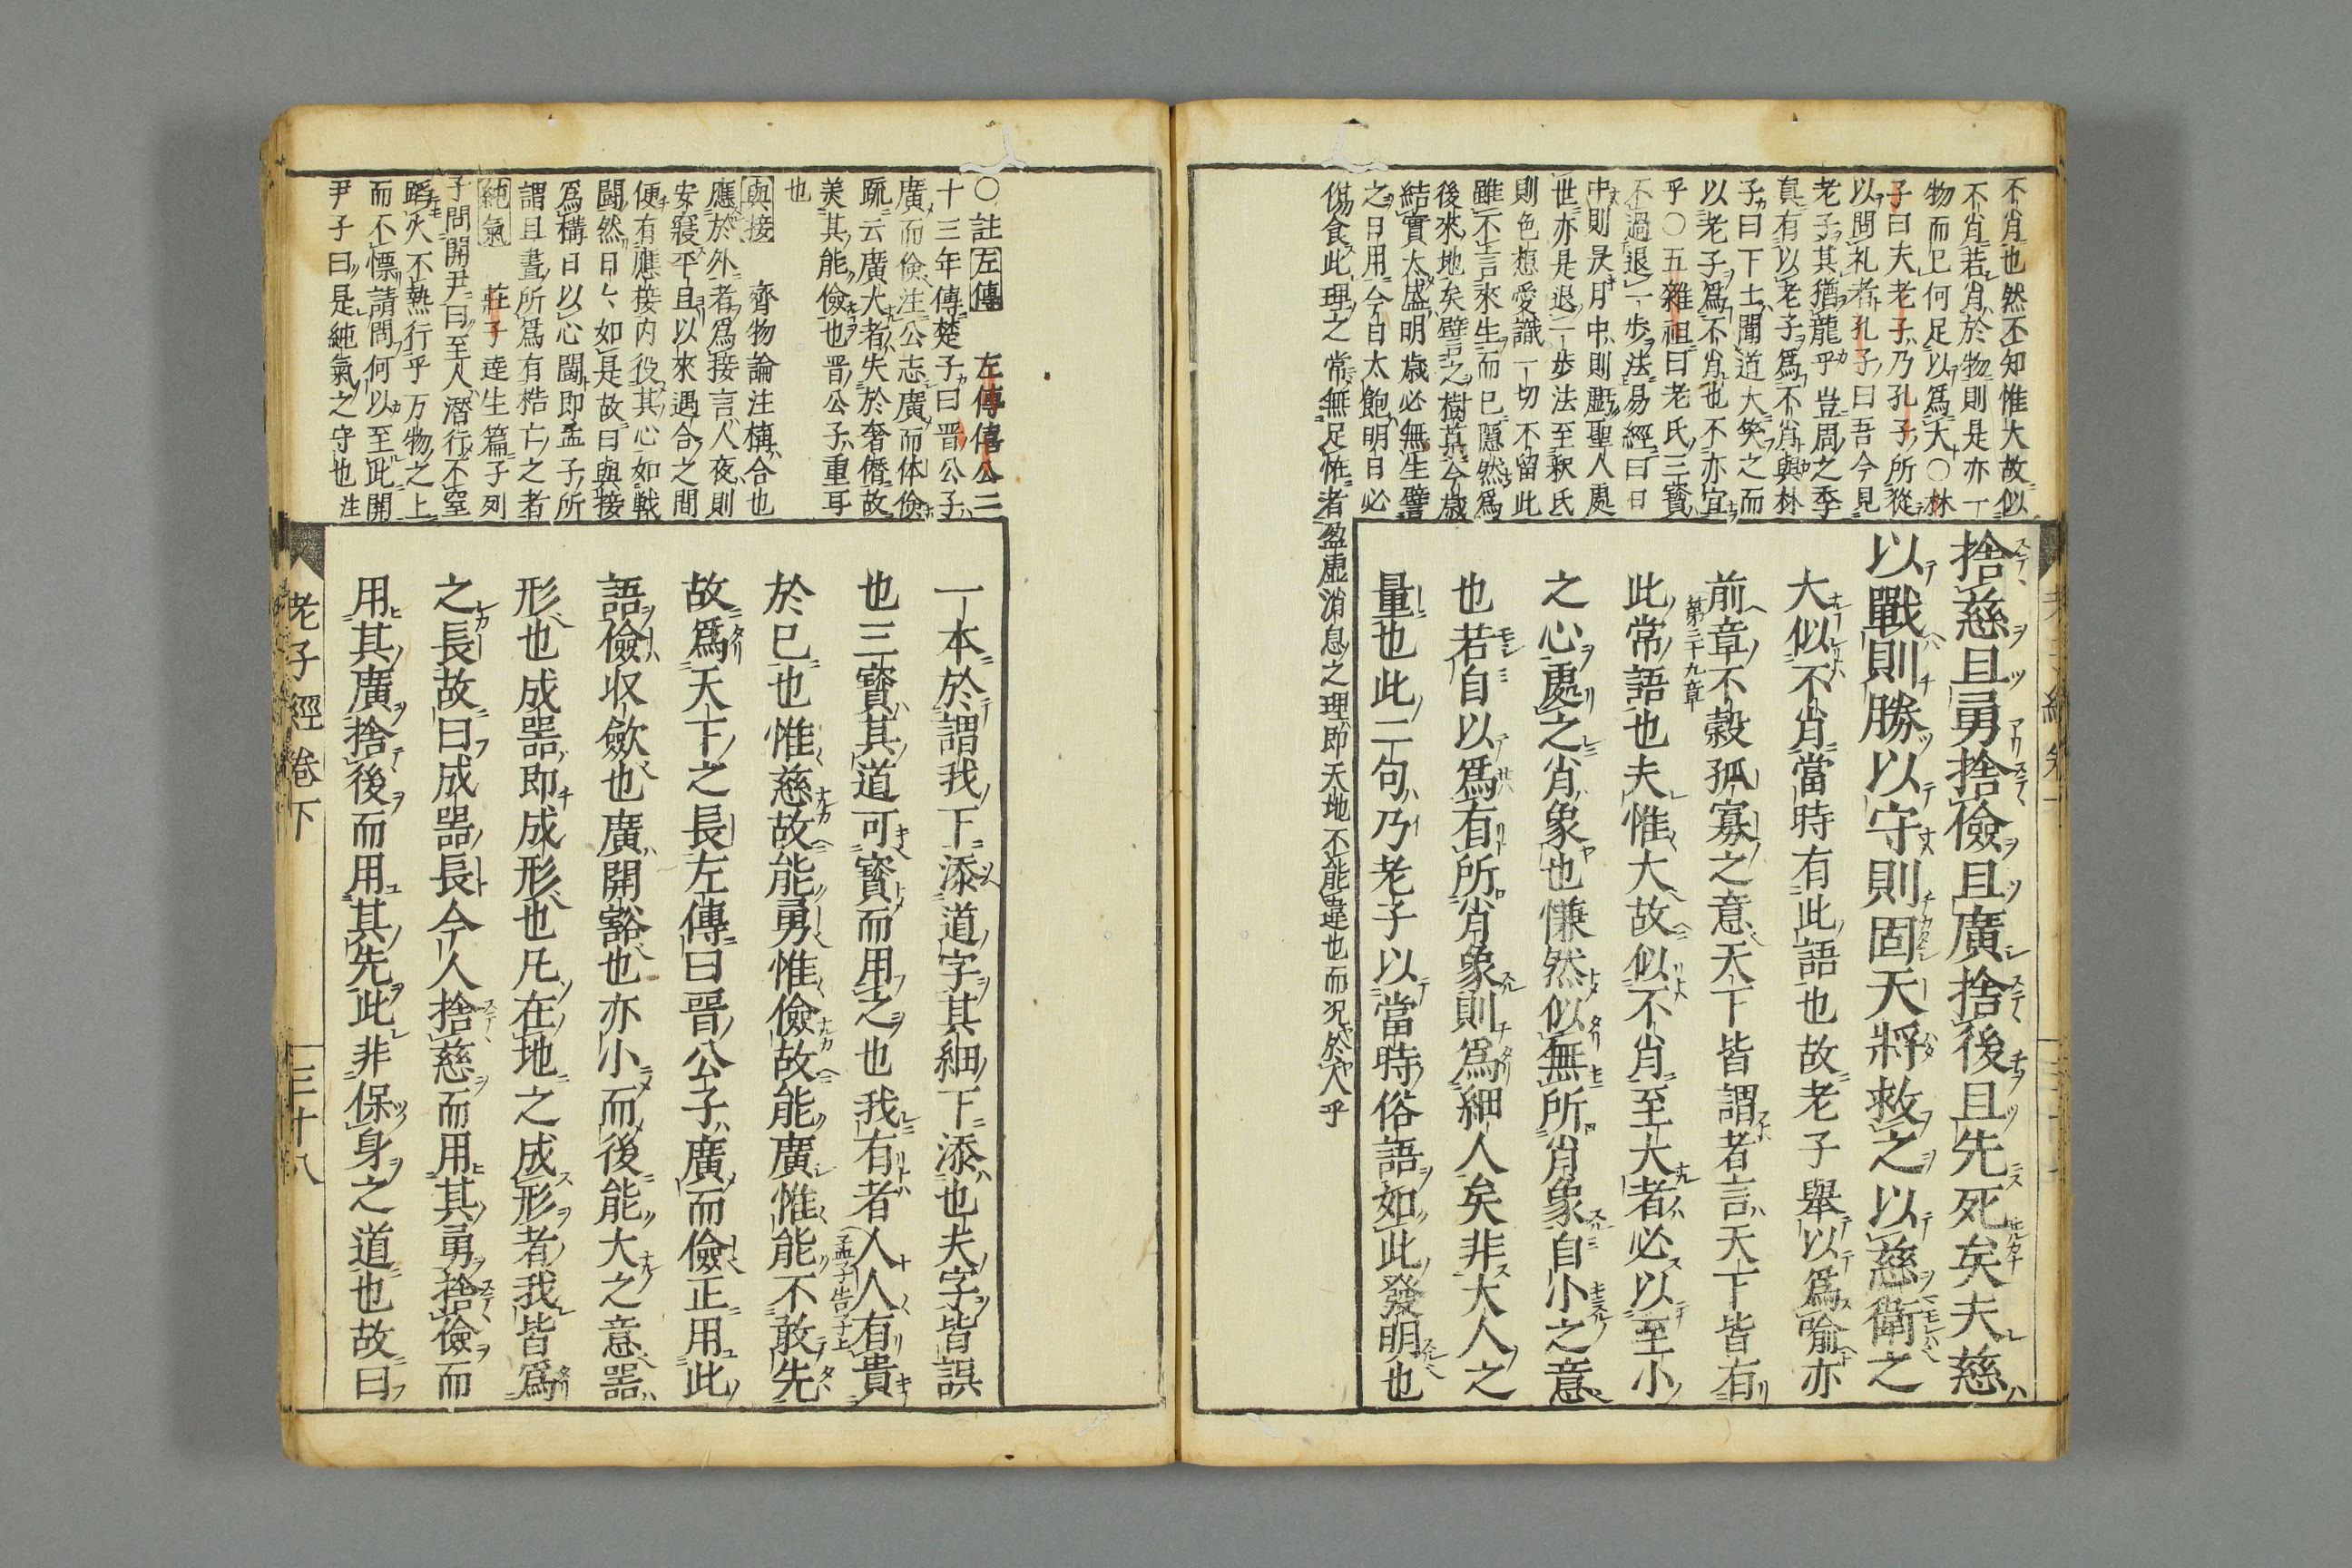 不肖也然不知惟大故似
不肖若肖於物則是亦一
物而已何足以爲大〇林
子曰夫老子乃孔子所從
以問礼者孔子曰吾今見
老子其猶龍乎豈周之季
真有以老子爲不肖與林
子曰下士聞道大笑之而
以老子爲不肖也不亦宜
乎〇五雜祖曰老氏三寳
不過退一歩法易經曰日
中則昃月中則虧聖人處
世亦是退一歩法至釈氏
則色想愛識一切不留此
雖不言來生而已隱然爲
後來地矣譬之樹菓今歳
結實太盛明歳必無生譬
之日用今日太飽明日必
傷食此理之常無足怪者盈虚消息之理即天地不能違也而况於人乎
捨慈且勇捨儉且廣捨後且先死矣夫慈
以戰則勝以守則固天將救之以慈衛之
大似不肖當時有此語也故老子舉以爲喻亦
前章不穀孤寡之意天下皆謂者言天下皆有
第三十九章
此常語也夫惟大故似不肖至大者必以至小
之心處之肖象也慊然似無所肖象自小之意
也若自以爲有所肖象則爲細人矣非大人之
量也此二句乃老子以當時俗語如此發明也
〇註左傳 左傳僖公二
十三年傳楚子曰晋公子
廣而儉注公志廣而体儉
疏云廣大者失於奢僭故
美其能儉也晋公子重耳
也
與接 齊物論注構合也
應於外者爲接言人夜則
安寢平且以來遇合之間
便有應接内役其心如戰
闘然日々如是故曰與接
爲構日以心闘即孟子所
謂旦晝所爲有梏亡之者
純氣 莊子達生篇子列
子問關尹曰至人潛行不窒
蹈火不熱行乎万物之上
而不慄請問何以至此關
尹子曰是純氣之守也注
一本於謂我下添道字其細下添也夫字皆誤
也三寳其道可寳而用之也我有者人人有貴
孟子告子上
於已也惟慈故能勇惟儉故能廣惟能不敢先
故爲天下之長左傳曰晋公子廣而儉正用此
語儉収歛也廣開豁也亦小而後能大之意噐
形也成噐即成形也凡在地之成形者我皆爲
之長故曰成噐長今人捨慈而用其勇捨儉而
用其廣捨後而用其先此非保身之道也故曰
老子經卷下
三十八